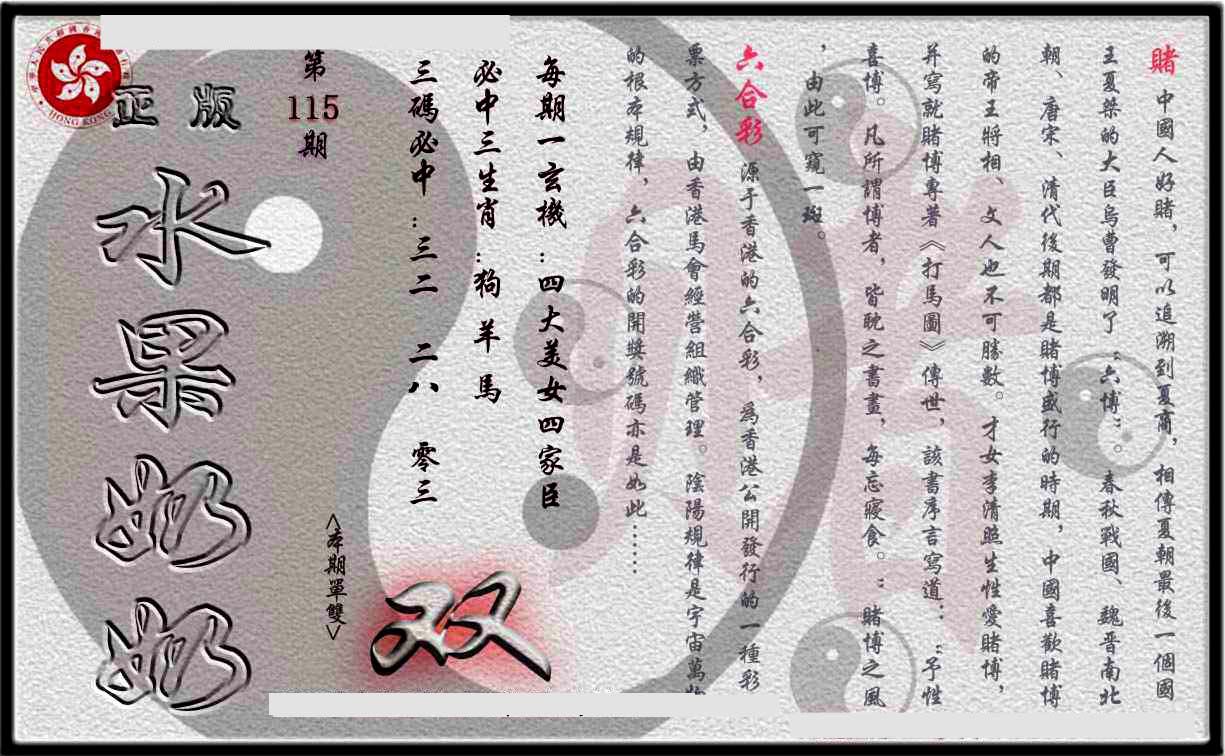 賭 中國人好賭，可以追溯到夏商，相傳夏朝最後一個國
王夏桀的大臣烏曹發明了“六博”。春秋戰國、魏晋南北
朝、唐宋、清代後期都是賭博盛行的時期，中國喜歡賭博
的帝王將相、文人也不可勝數。才女李清照生性愛賭博，
并寫就賭博專著《打馬圖》傳世，該書序言寫道：“予性
喜博。凡所謂博者，皆耽之書畫，每忘寢食。”賭博之風
，由此可窺一斑。
六合彩 源于香港的六合彩，為香港公開發行的一種彩
票方式，由香港馬會經營組織管理。陰陽規律是宇宙萬物
的根本規律，六合彩的開獎號碼亦是如此……
每期一玄機：四大美女四家臣
必中三生肖：狗 羊 馬
三碼必中：三二 二八 零三
<本期單雙>
双
第115期
正版
水果奶奶
HONG KONG